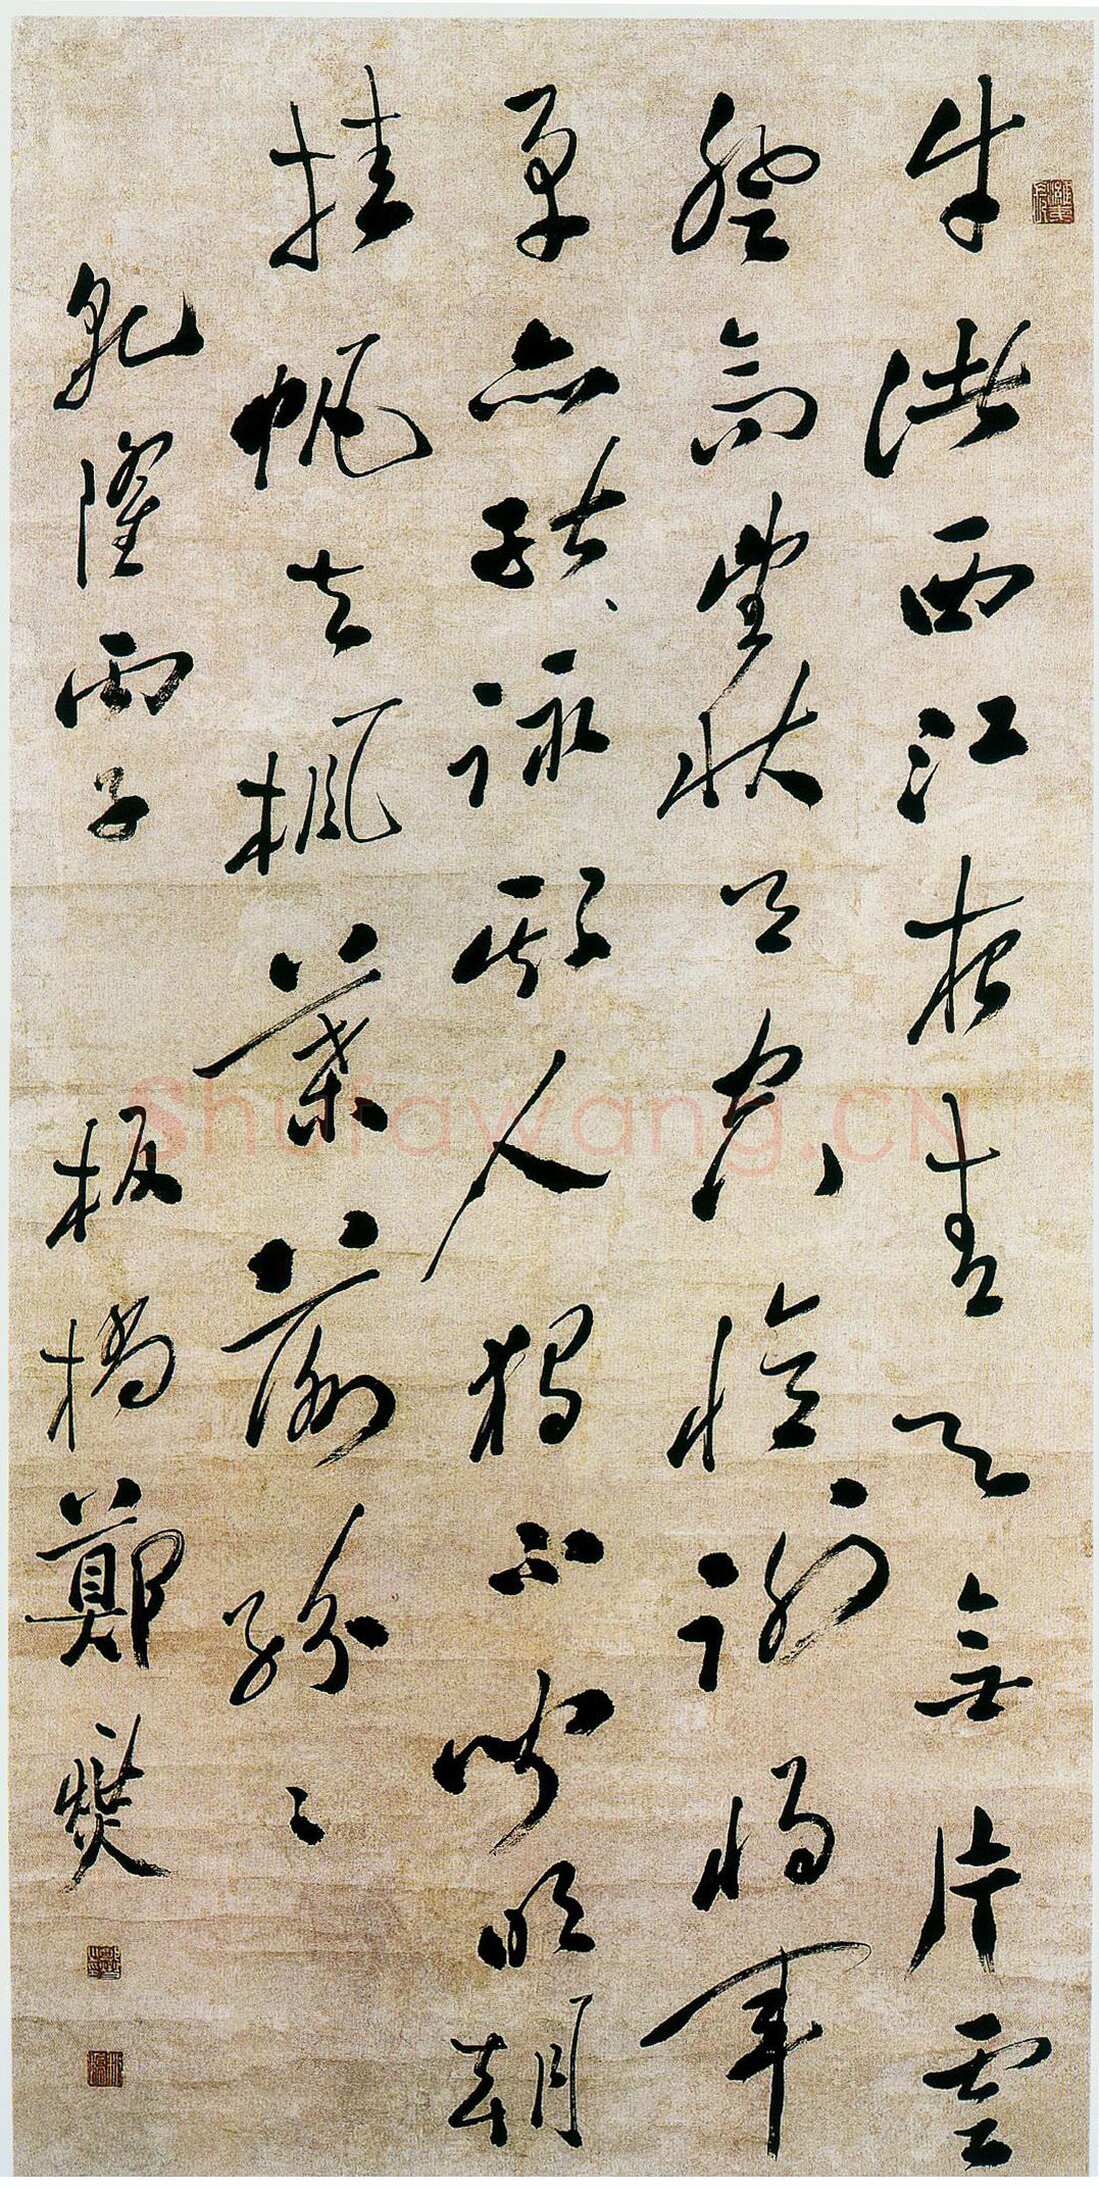 牛渚西江夜青天無片雲
登高望秋月空憶謝將軍
余亦能詠斯人獨不聞明朝
挂帆去楓葉落紛〻
乾隆丙子 板橋鄭燮
Shufawang.CN